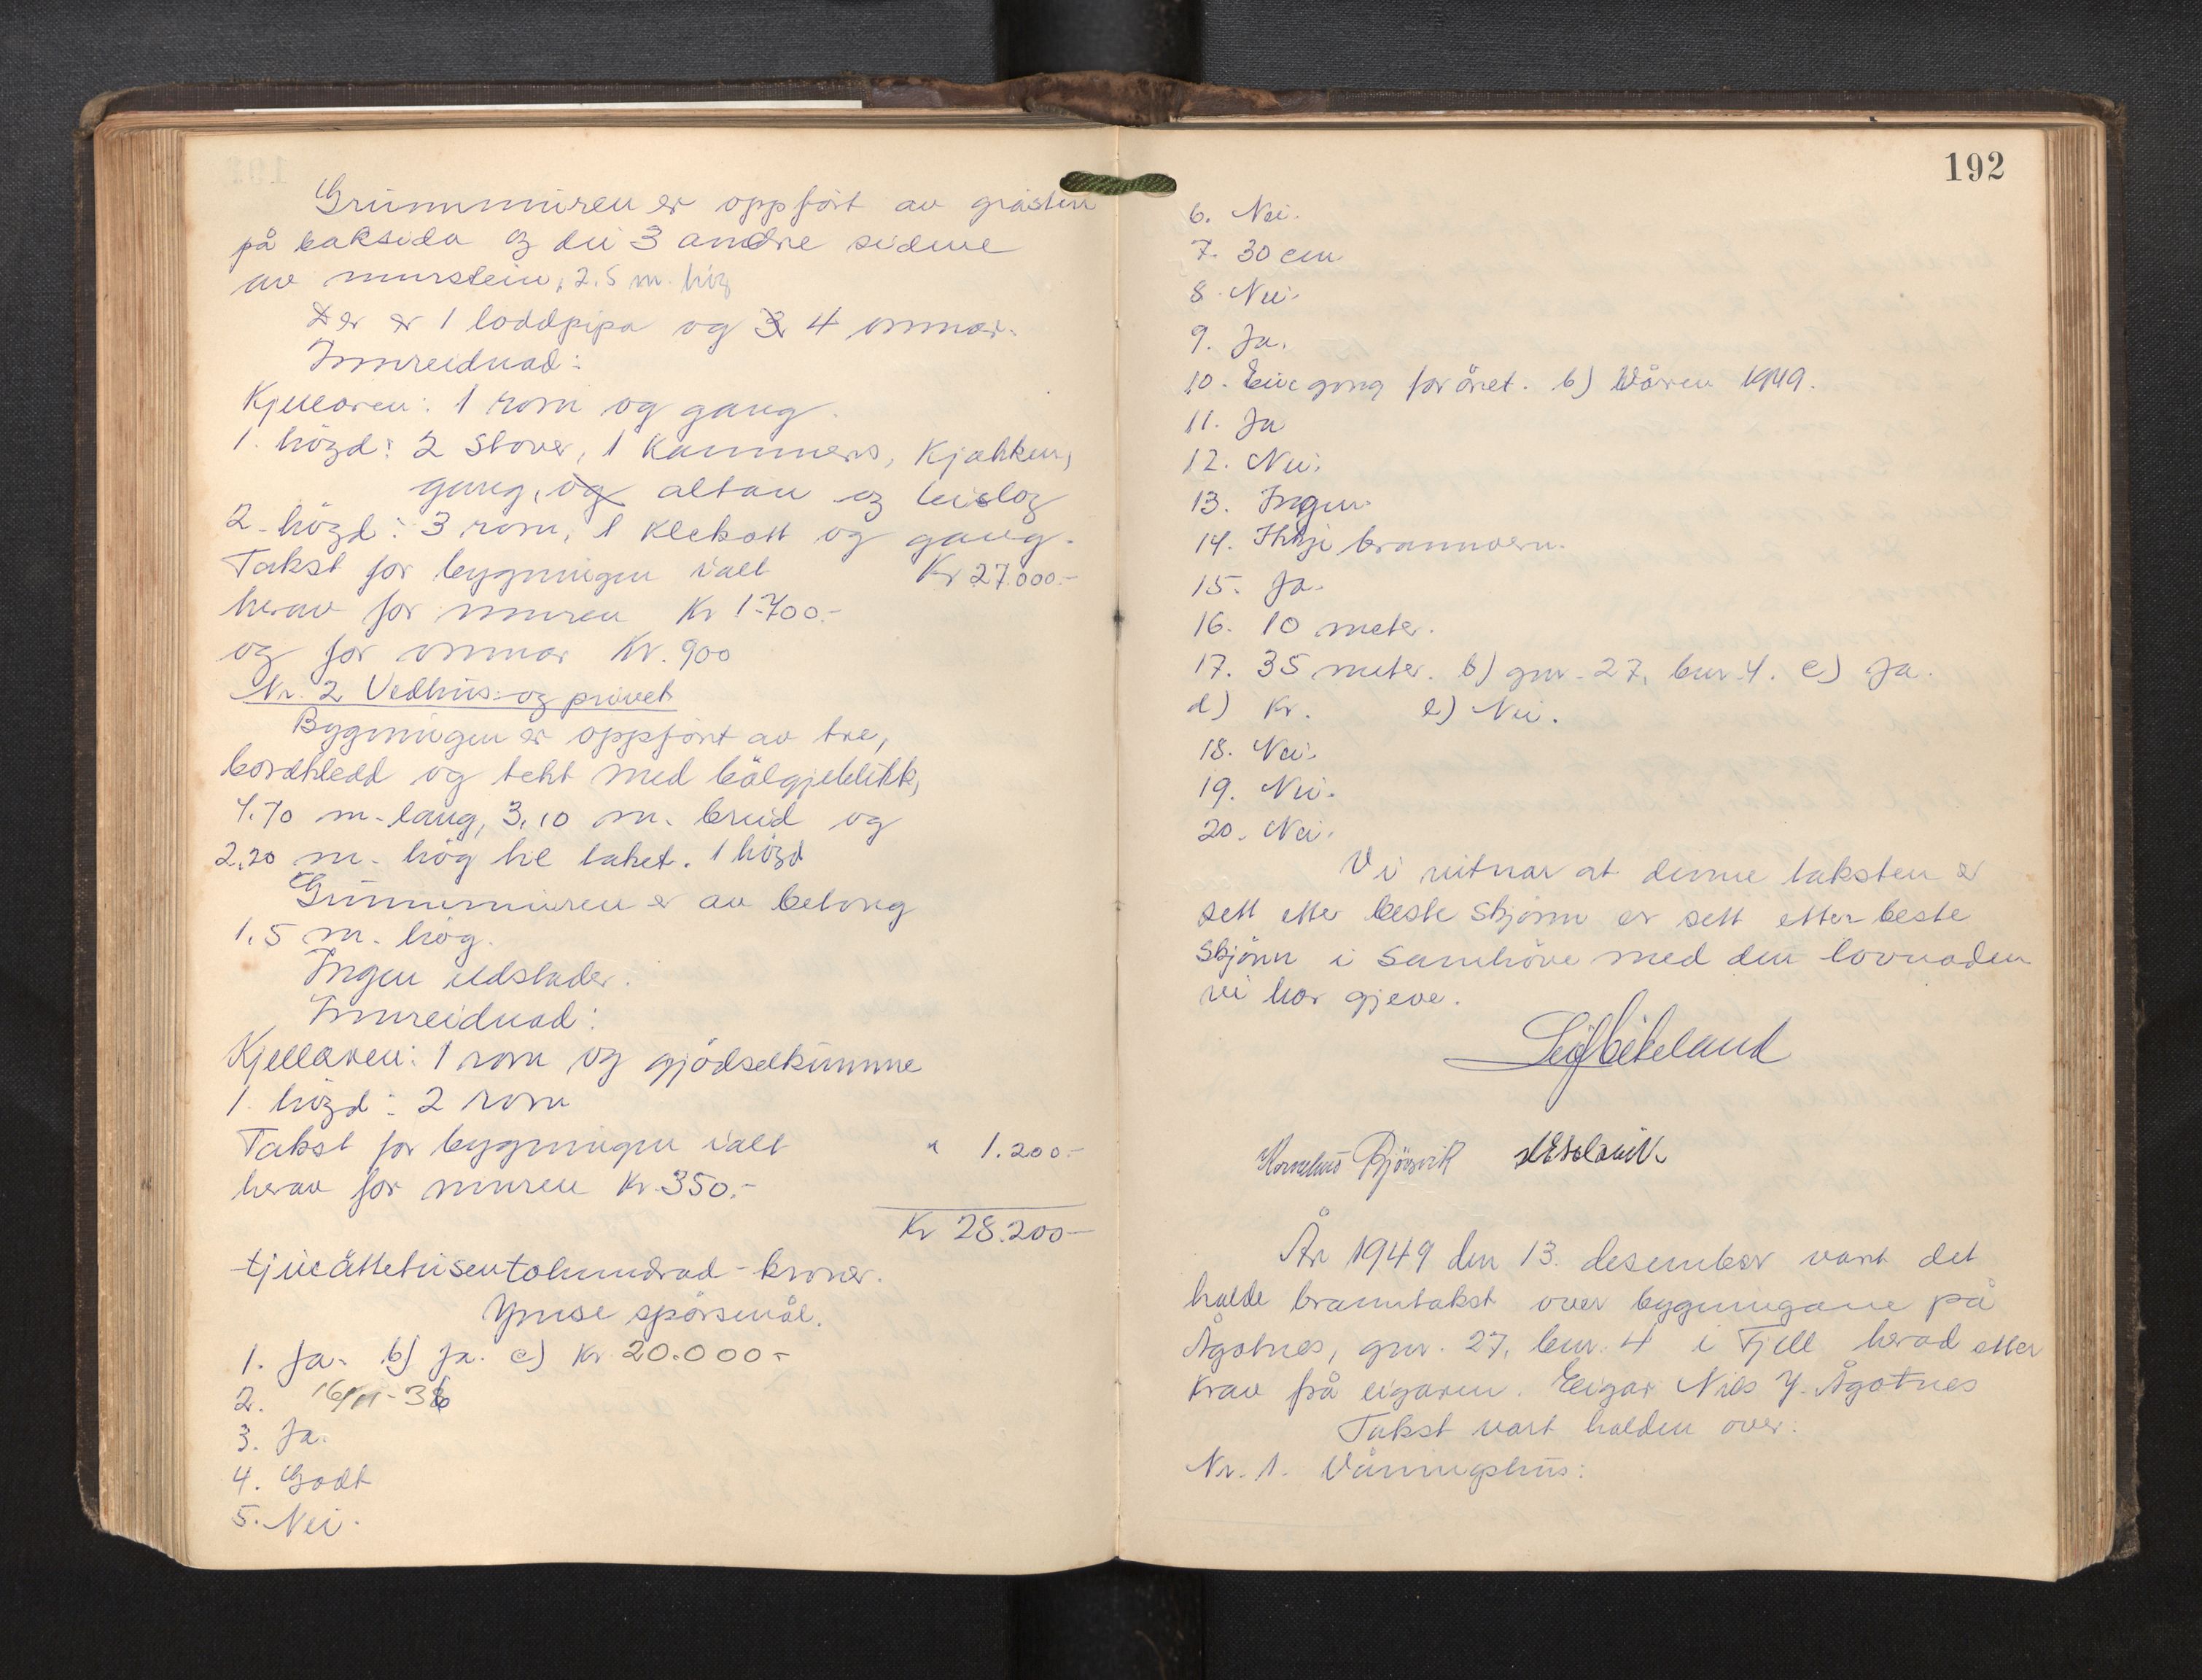 Grunnmuren er oppført av gråstein
på baksida og dei 3 andre sidene
av murstein, 2.5 m. høg
Der er 1 loddpipa og 4 omnar.
Innreidnad:
Kjellaren: 1 rom og gang.
1. høgd: 2 stover, 1 kammers, kjøkken,
gang, og altan og bislag
2. høgd: 3 rom, 1 klekott og gang.
Takst for bygningen ialt Kr 27.000.-
herav for muren Kr 1.700.-
og for omnar Kr. 900
Nr. 2 Vedhus og privet
Bygningen er oppført av tre,
bordkledd og tekt med bølgjeblikk,
4.70 m. lang, 3.10 m. breid og
2.20 m. høg til taket. 1 høgd
Grunnmuren er av betong
1.5 m. høg.
Ingen eldstader.
Innreidnad:
Kjellaren: 1 rom og gjødselkumme
1. høgd: 2 rom
Takst for bygningen ialt " 1.200.-
herav for muren Kr. 350.-
Kr 28.200-
tjueåttetusentohundrad - kroner.
Ymse spørsmål.
1. Ja. b) Ja. c) Kr 20.000.-
2. 16/11-36
3. Ja.
4. Godt
5. Nei.
192
6. Nei.
7. 30 cm
8. Nei.
9. Ja.
10. Ein gong for året. b) Våren 1949.
11. Ja
12. Nei.
13. Ingen.
14. Ikkje brannvern.
15. Ja.
16. 10 meter.
17. 35 meter. b) gnr. 27, bnr. 4. c) Ja.
d) Kr. e) Nei.
18. Nei.
19. Nei.
20. Nei.
Vi vitnar at denne taksten er
sett etter beste skjønn er sett etter beste
skjønn i samhøve med den lovnaden
vi har gjeve.
Leif Eikeland
Kornelius Bjørsvik
År 1949 den 13. desember vart det
halde branntakst over bygningane på
Ågotnes, gnr. 27, bnr. 4 i Fjell herad etter
krav frå eigaren. Eigar Nils Y. Ågotnes
Takst vart halden over:
Nr. 1. Våningshus: